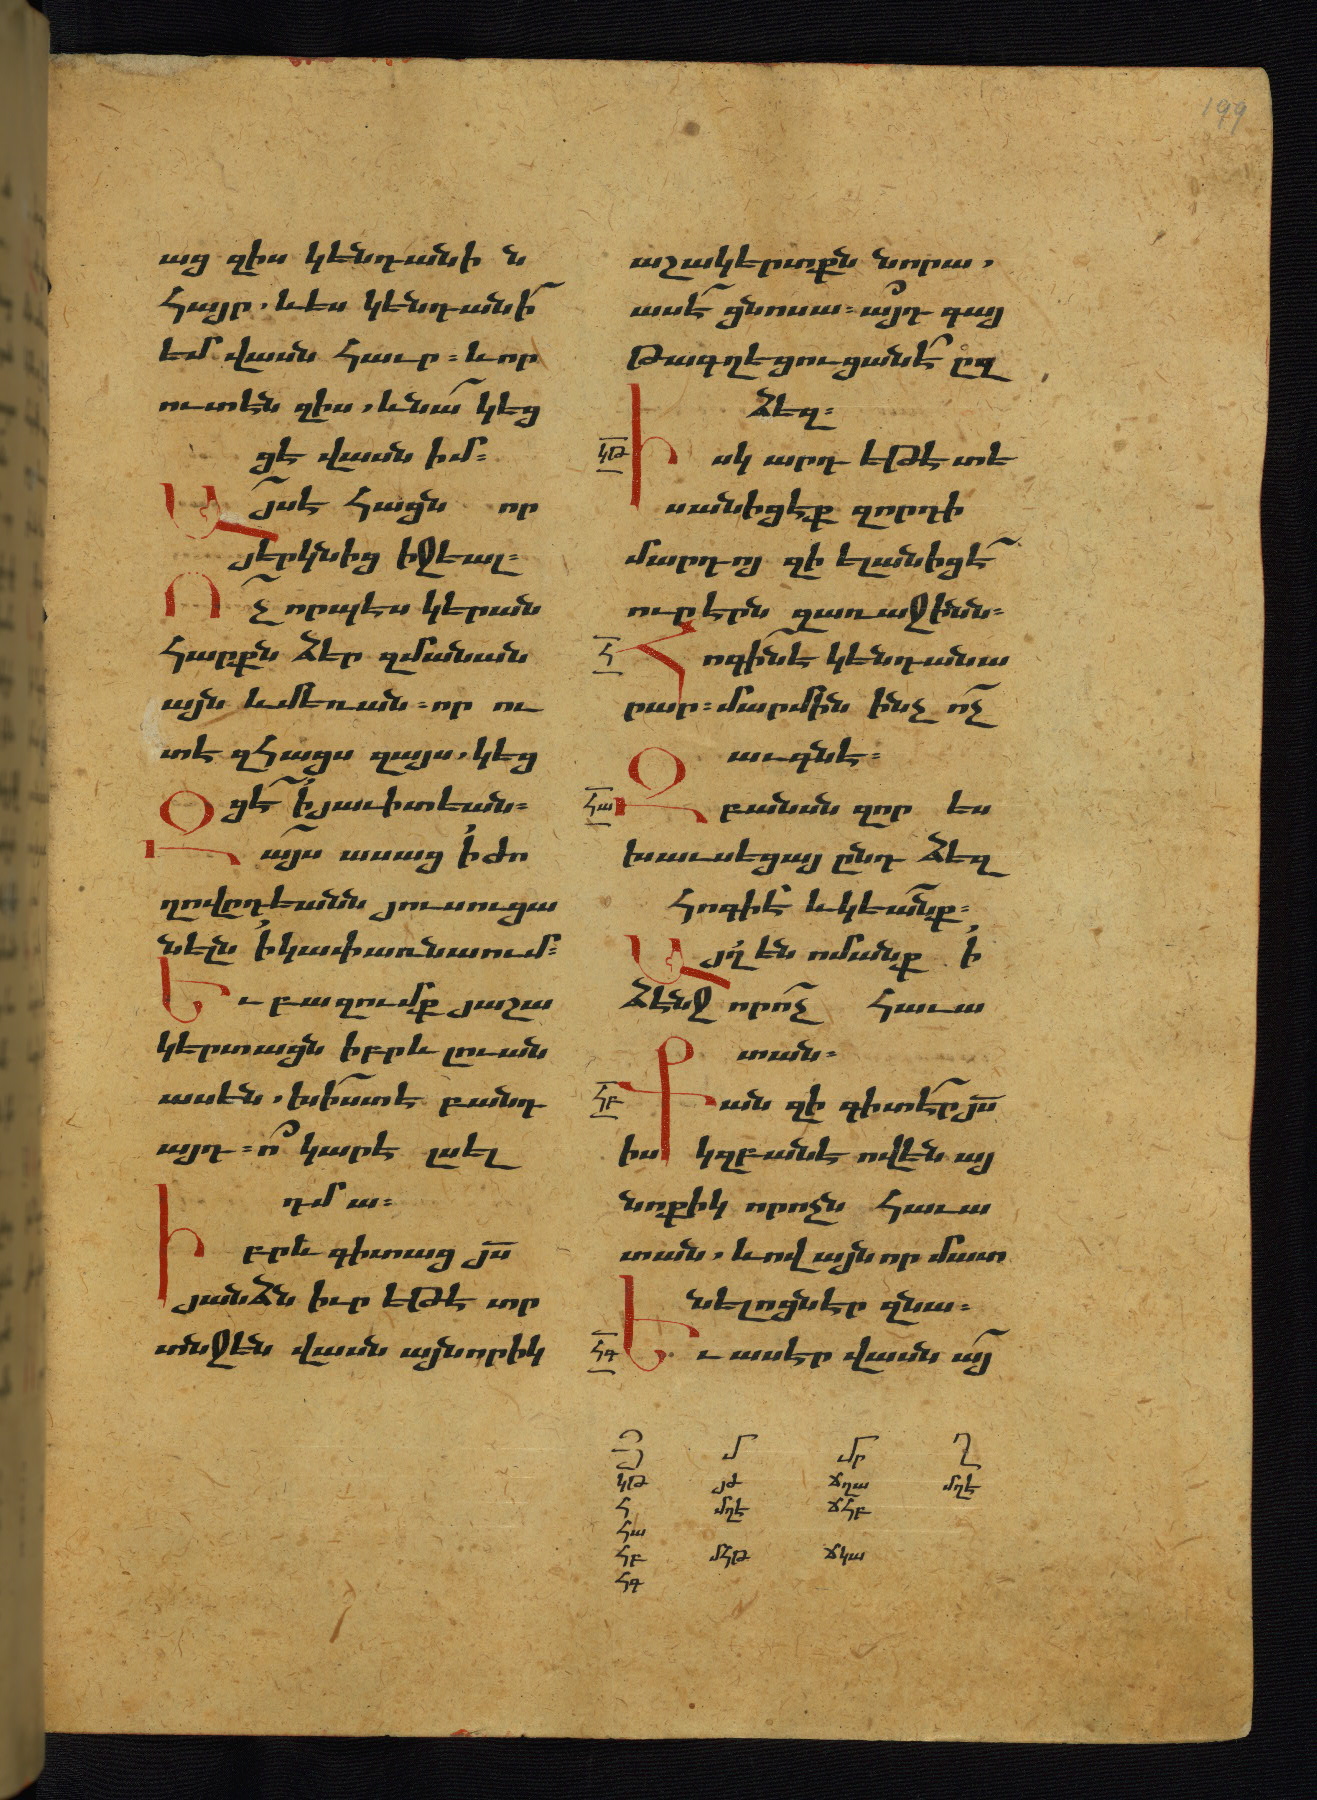 199
աց զիս կենդանի ն
Հայր, և ես կենդանի
եմ վասն Հաւր։ և որ
ուտէն զիս, և նա կեց
ցէ վասն իմ։
Այս է Հացն որ
յերկնից իջեալ։
Ոչ որպէս կերան
Հարքն ձեր զմանան
այն և մեռան։ որ ու
տէ զՀացս զայս, կեց
ցէ ի յաւիտեան։
Զայս ասաց ի ժո
ղովրդեանն յուսուցա
նելն ի կափառնաում։
Եւ բազումք յաշա
կերտացն իբրև լուան
ասեն, խիստ է բանդ
այդ։ ո՞ կարէ լսել
դմա։
Իբրև գիտաց յս
յանձն իւր եթէ տր
տնջեն վասն այնորիկ
աշակերտքն նորա,
ասէ ցնոսա։ այդ գայ
թագղեցուցանէ ըզ
ձեզ։
կթ Իսկ արդ եթէ տե
սանիցէք զորդի
մարդոյ զի ելանիցէ
ուր էրն զառաջինն։
Հ Հոգին է կենդանա
րար։ մարմին ինչ ոչ
աւգնէ։
Հա Զբանսն զոր ես
խաւսեցայ ընդ ձեզ
Հոգի է և կեանք։
Այղ են ոմանք ի
ձէնջ որ ոչ Հաւա
տան։
Հբ Քանզի գիտէր յս
ի սկզբանէ ովեն այ
նոքիկ որ ոչն Հաւա
տան, և ով այն որ մատ
նելոցն էր զնա։
Հգ Եւ ասէր վասն այ
Յ մ մր ղ
կթ յժ ճղա մղէ
Հ մղէ ճՀբ
Հա
Հբ մՀթ ճկա
Հգ